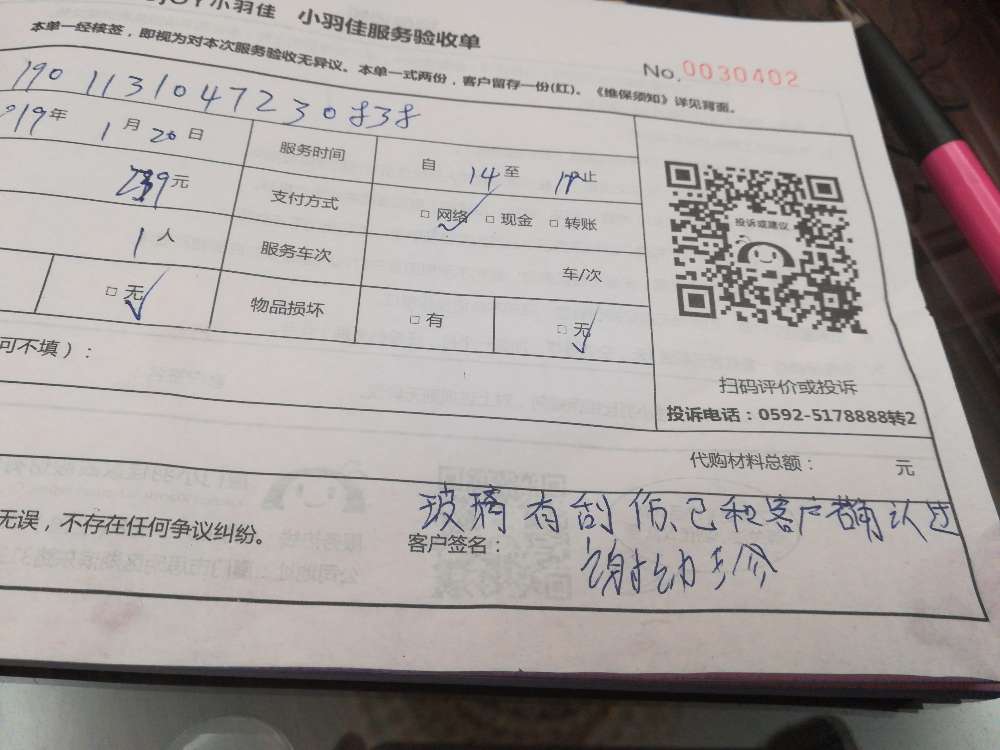 小羽佳 小羽佳服务验收单
本单一经核签，即视为对本次服务验收无异议。本单一式两份，客户留存一份(红)。《维保须知》详见背面。
No.0030402
1901131047230838
019年1月20日 服务时间 自14至17止
239元 支付方式 □网络 □现金 □转账
1人 服务车次 车/次
□无 物品损坏 □有 □无
投诉或建议
扫码评价或投诉
投诉电话：0592-5178888转2
可不填）：
代购材料总额： 元
无误，不存在任何争议纠纷。
玻璃有刮伤、已和客户确认过
客户签名：